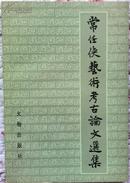 常任侠藝術考古論文選集
文物出版社